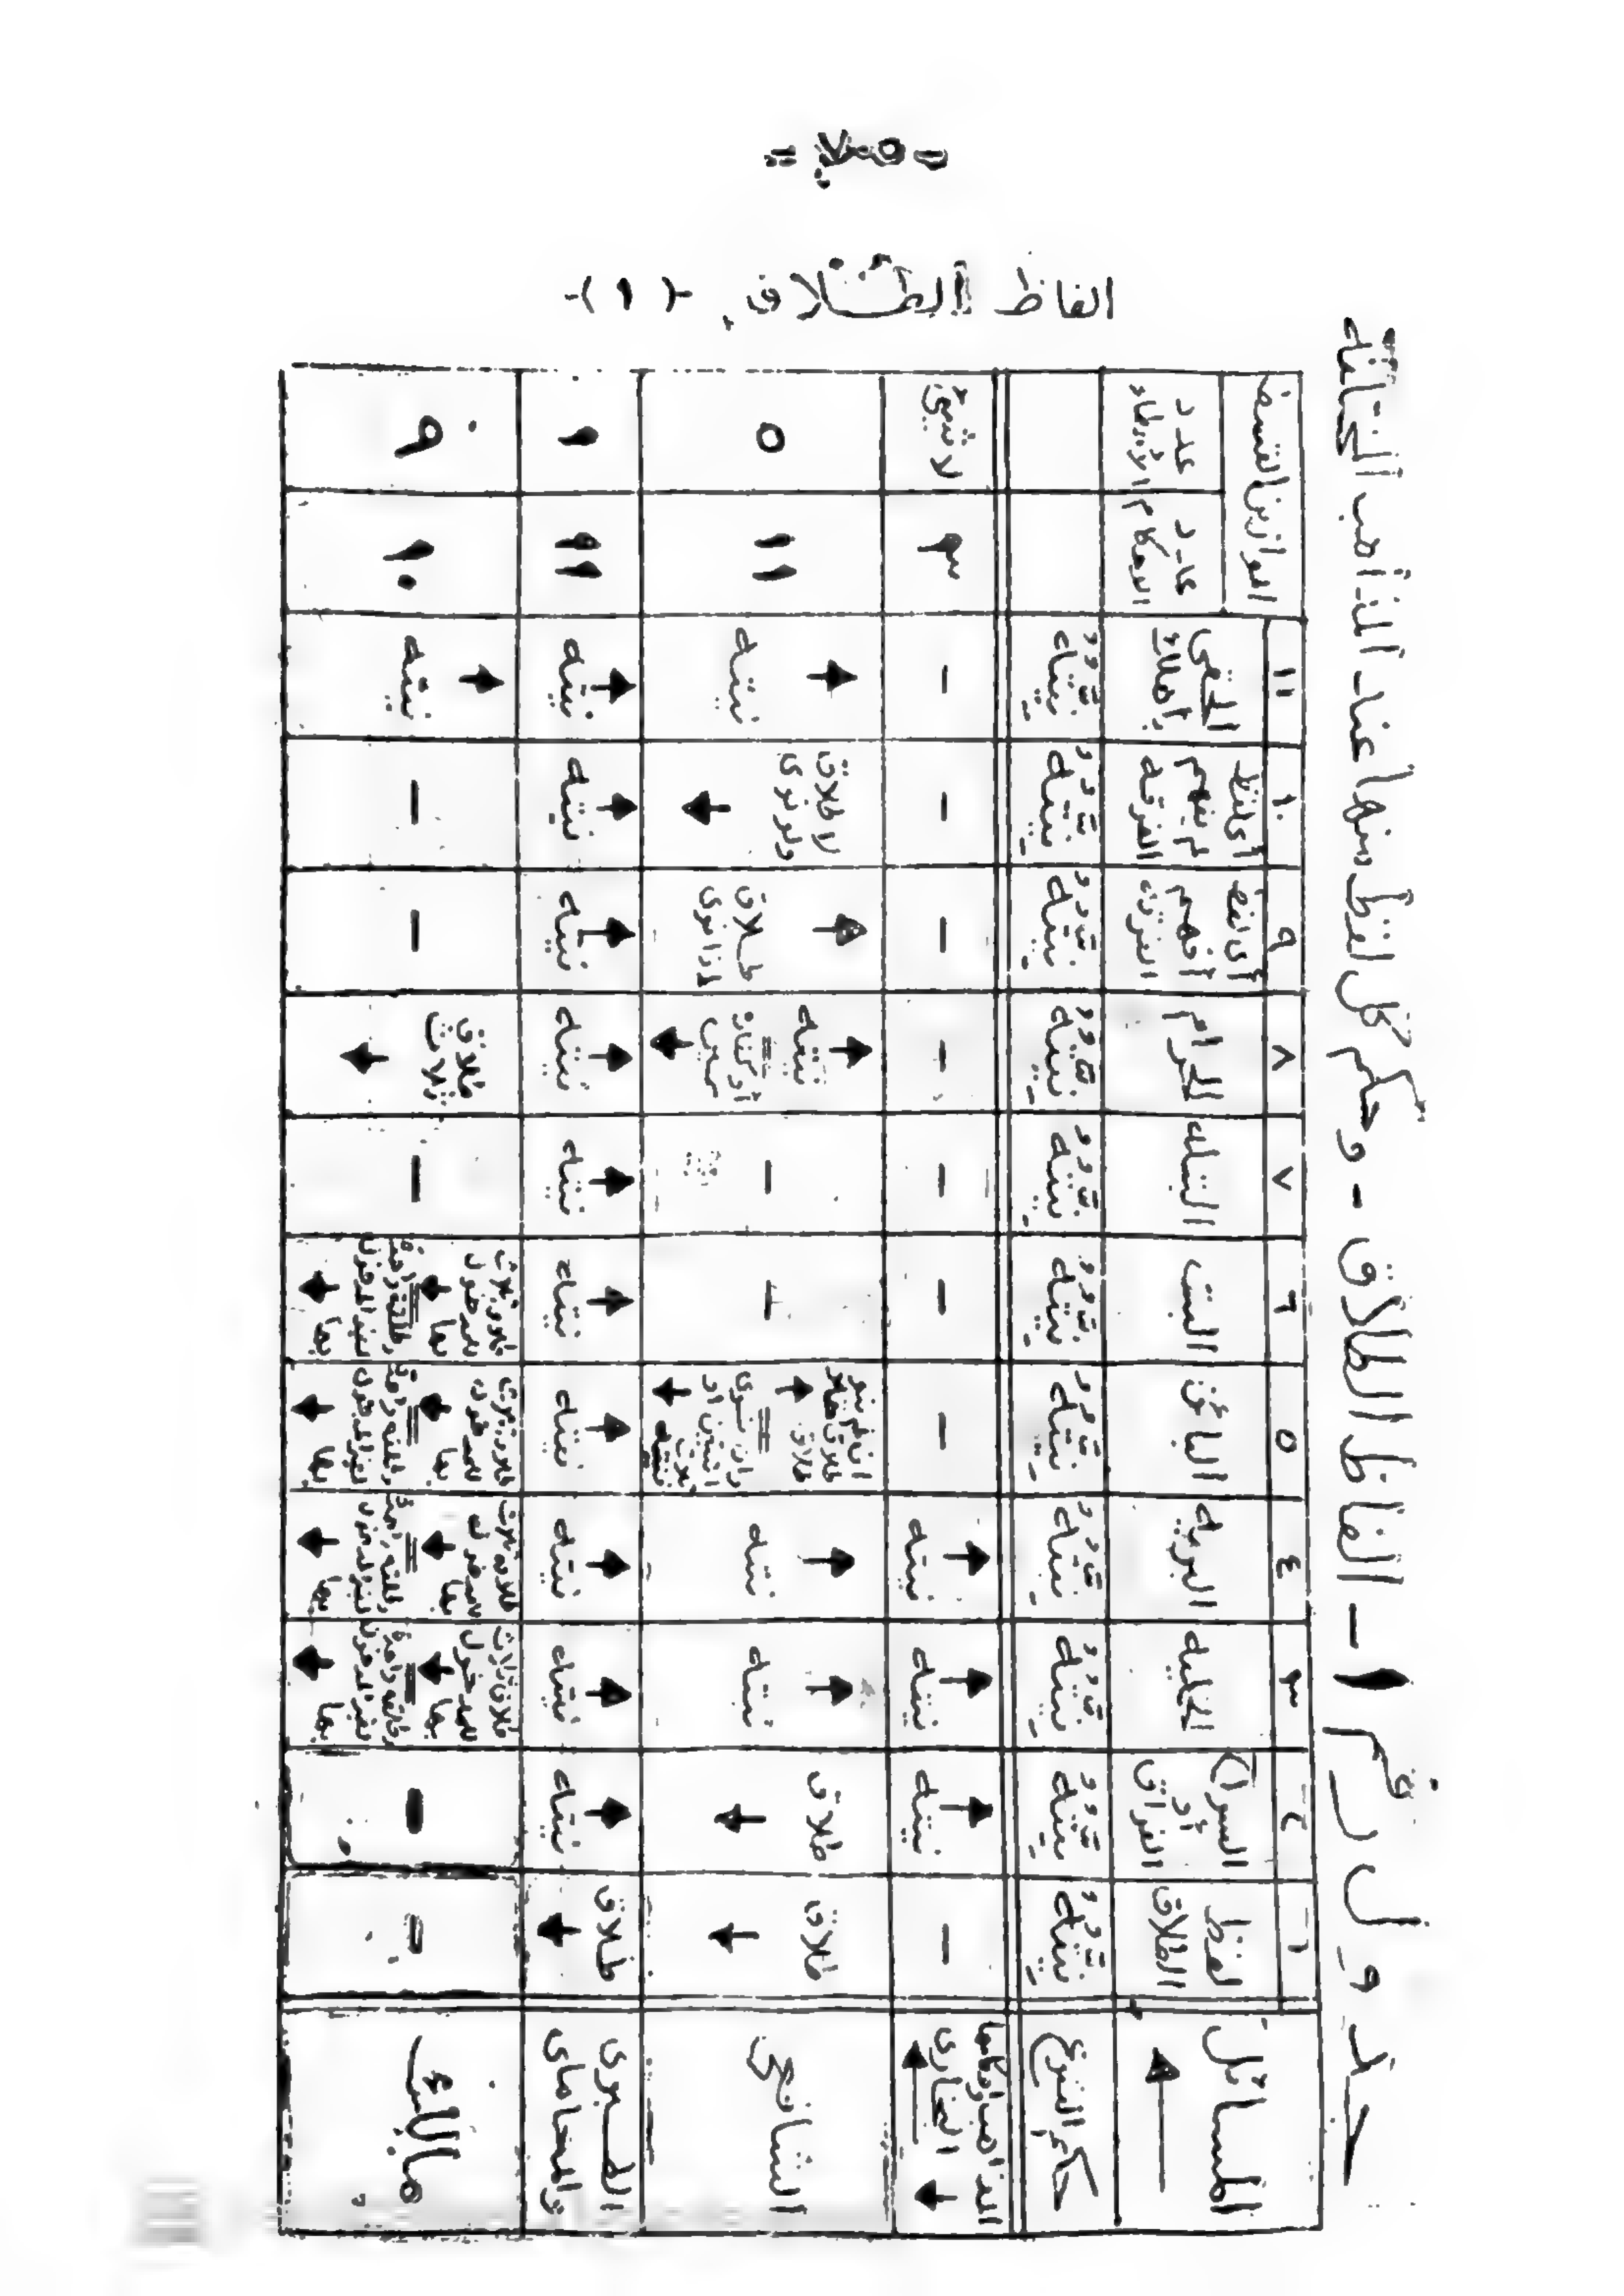 الفاظ الطلاق (١)
جدول رقم ١ - الفاظ الطلاق - وحكم كل لفظ منها عند المذاهب المختلفة
المسائل
١ لفظ الطلاق
٢ السراح أو الفراق
٣ الخلية
٤ البرية
٥ البائن
٦ البت
٧ البتلة
٨ الحرام
٩ أى لفظ أفهم الفرقة
١٠ أى لفظ لم يفهم الفرقة
١١ الحقى بأهلك
الموازين القسط
عدد الأحكام
عدد الأخطاء
حكم الشرع
نيته
نيته
نيته
نيته
نيته
نيته
نيته
نيته
نيته
نيته
نيته
المذاهب وحكمها
البخارى
-
نيته
نيته
نيته
-
-
-
-
-
-
-
٣
لا شيئ
الشافعى
طلاق
طلاق
نيته
نيته
ان لم ينو طلاق
طلاق
وان نوى اثنين او
نيته
-
-
نيته
أو كفارة يمين
طلاق اذا نوى
لا طلاق ولو نوى
نيته
١١
٥
الطبرى
والمحاماى
طلاق
نيته
نيته
نيته
نيته
نيته
نيته
نيته
نيته
نيته
نيته
١١
١
مالك
-
-
طلاق ثلاث للمدخول بها
طلقة واحدة لغير المدخول بها
طلاق ثلاث للمدخول بها
طلقة واحدة لغير المدخول بها
طلاق ثلاث للمدخول بها
طلقة واحدة لغير المدخول بها
طلاق ثلاث للمدخول بها
طلقة واحدة لغير المدخول بها
-
طلاق ثلاث
-
-
نيته
١٠
٩